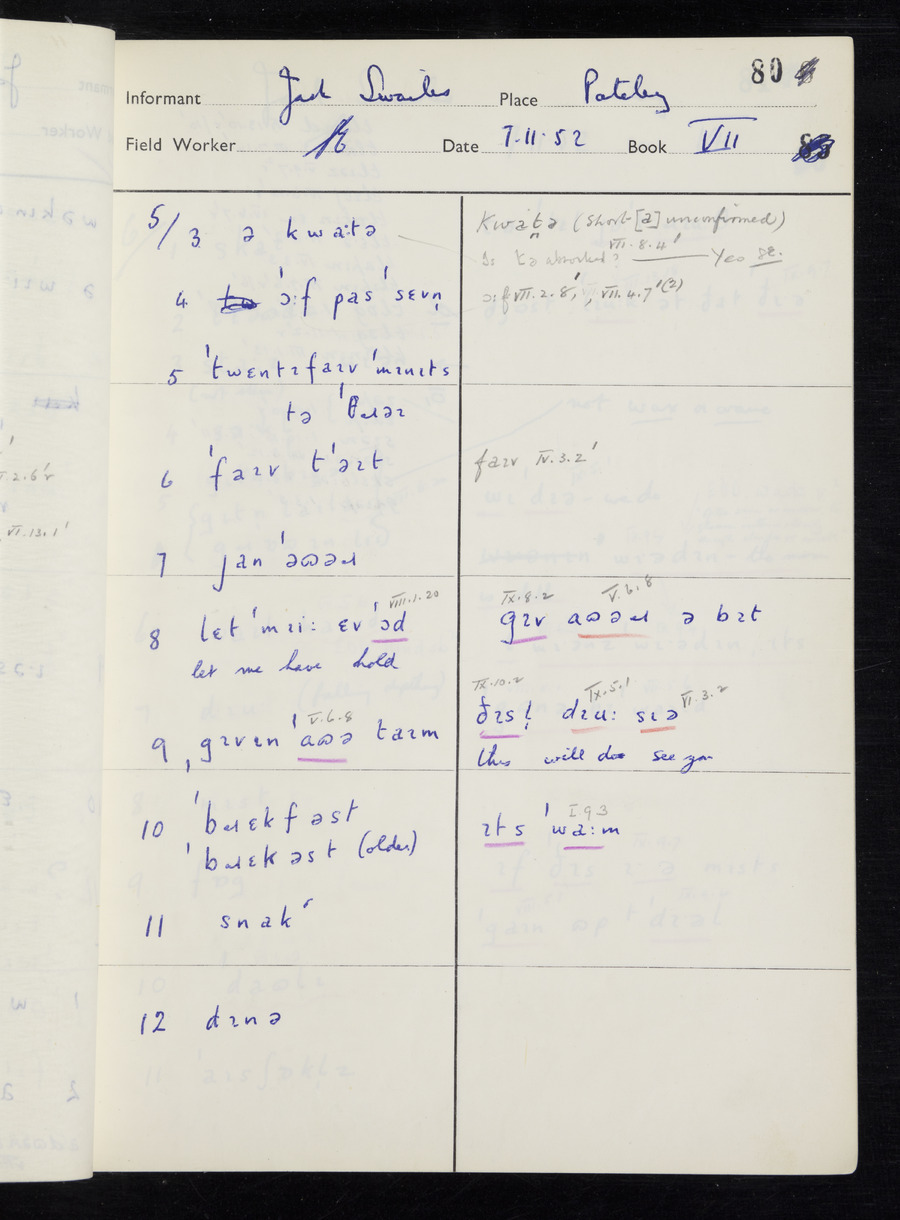 80
Informant Jack Swailes Place Pateley
Field Worker Date 7.11.52 Book VII
5/3 ə kwaːtə
kwatə (short [a] unconfirmed)
VII.8.4'
Is tə absorbed? Yes
4 ˈɔːf pas ˈsɛvn̩
ɔːf VII.2.8', VII.4.7'(2)
5 ˈtwɛntɪfaɪv ˈmɪnɪts
tə ˈθɹɪəɪ
6 ˈfaɪv tˈəɪt
faɪv IV.3.2'
7 jan ˈəʊəɹ
8 lɛt ˈmɪiː ɛv ˈɔd VIII.1.20
let me have hold
IX.8.2 V.6.8
gɪv aʊəɹ ə bɪt
9 ˌgɪvɪn ˈaʊə taɪm V.6.8
IX.10.2 IX.5.1 VI.3.2
ðɪs ! dɪuː sɪə
this will do see you
10 ˈbɹɛkfəst
ˈbɹɛkəst (older)
I 9 3
ɪts ˈwaːm
11 snak'
12 dɪnə